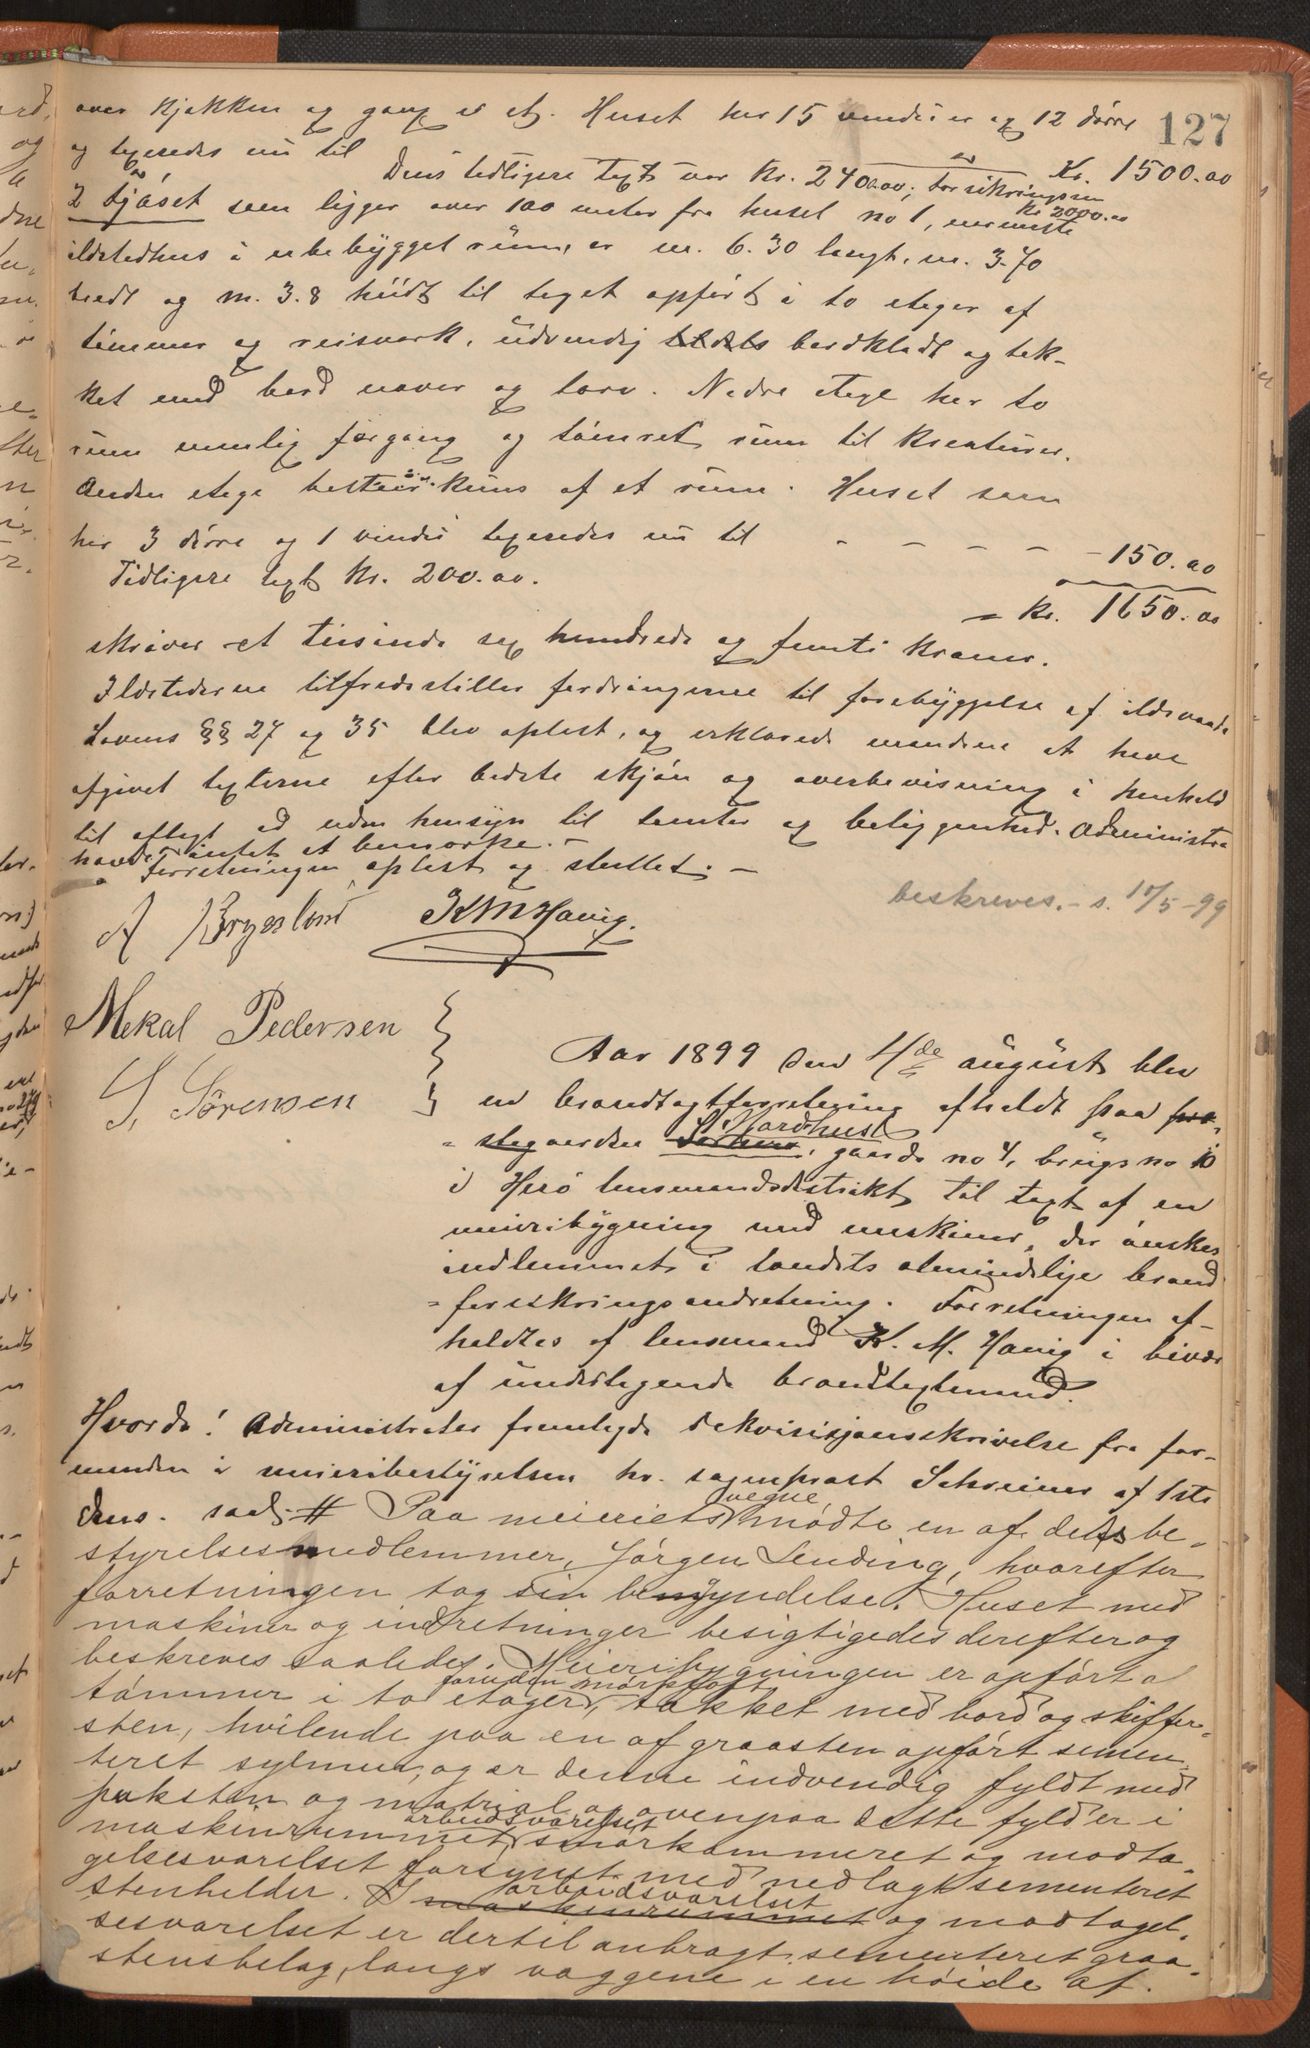 127
over kjøkken og gang i etg. Huset har 15 vinduer og 12 dørre
og taxeredes nu til Kr. 1500.00
Dens tidligere taxt var Kr. 2400.00, forsikringssum Kr 2000.00
2 fjøset som ligger over 100 meter fra huset no 1, nærmeste
ildstedhus i ubebygget rum, er m. 6.30 langt, m. 3.70
bredt og m. 3.8 høidt til taget opført i to etager af
tømmer og reisverk, udvendig bordklædt og tæk-
ket med bord næver og torv. Nedre etage har to
rum nemlig forgang og tømret rum til kreaturer.
Anden etage bestaar kuns af et rum. Huset som
har 3 dørre og 1 vindu taxeredes nu til - - - - - 150.00
Tidligere taxt Kr. 200.00.
= Kr. 1650.00
skriver et tusinde sex hundrede og femti kroner.
Ildstederne tilfredsstiller fordringerne til forebyggelse af ildsvaade
Lovens §§ 27 og 35 blev oplæst, og erklærede mændene at have
afgivet taxterne efter bedste skjøn og overbevisning i henhold
til aflagt ed uden hensyn til tomter og beliggenhed. Administra
havde intet at bemærke. -
Forretningen oplæst og sluttet. -
beskreves. - s. 10/5 - 99
A Brygeslout K M Havig.
Mekal Pedersen
S. Sørensen
Aar 1899 den 4de august blev
en brandtaxtforretning afholdt paa pre-
stegaarden Nordhuset, gaards no 4, brugs no 10
i Herø lensmandsdistrikt til taxt af en
meieribygning med maskiner, der ønskes
indlemmet i landets almindelige brand
= forsikringsindretning. Forretningen af-
holdtes af lensmand K. M. Havig i bivær
af undertegnede brandtaxtmænd.
Hvorda! Administrator fremlagde rekvisisjonsskrivelse fra for-
manden i meieribestyrelsen hr. sogneprest Schreiner af 1ste
dens. saal. # Paa meieriets vegne mødte en af dets be-
styrelsesmedlemmer, Jørgen Lending, hvorefter
forretningen tog sin begyndelse. Huset med
maskiner og indretninger besigtigedes derefter og
beskreves saaledes. Meieribygningen er opført a
tømmer i to etager, foruden mørkloft, tækket med bord og skiffer-
sten, hvilende paa en af graasten opført semen-
teret sylmur, og er denne indvendig fyldt med
puksten og matrial og ovenpaa dette fyld er i
maskinrummet, arbeidsværelset smørkammeret og modta-
gelsesværelset forsynet med nedlagt sementeret
stenhelder. I maskinrummet arbeidsværelset og modtagel-
sesværelset er dertil anbragt sementeret graa-
stensbelag, langs væggene i en høide af.